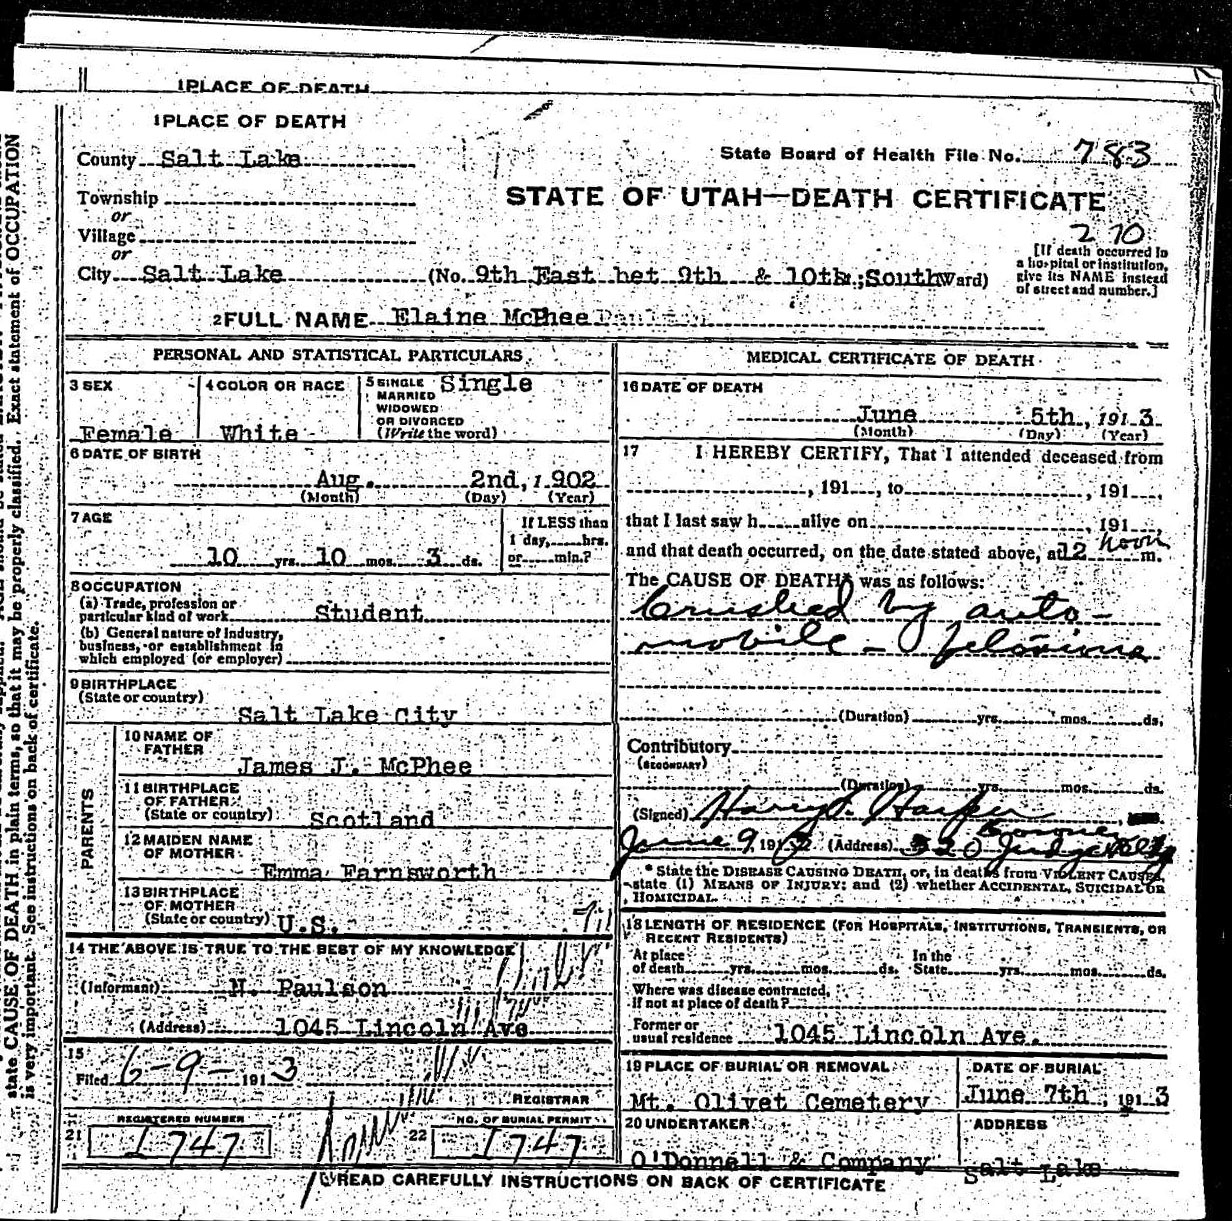 1 PLACE OF DEATH
1 PLACE OF DEATH
County Salt Lake
State Board of Health File No. 783
Township
STATE OF UTAH—DEATH CERTIFICATE
or
Village
270
or
[If death occurred in a hospital or institution, give its NAME instead of street and number.]
City Salt Lake (No. 9th East bet 9th & 10th; South Ward)
2 FULL NAME Elaine McPhee Paulson
PERSONAL AND STATISTICAL PARTICULARS
3 SEX Female
4 COLOR OR RACE White
5 SINGLE MARRIED WIDOWED OR DIVORCED (Write the word) Single
6 DATE OF BIRTH
Aug. 2nd, 1902
(Month) (Day) (Year)
7 AGE
10 yrs. 10 mos. 3 ds.
If LESS than 1 day, hrs. or min.?
8 OCCUPATION
(a) Trade, profession or particular kind of work Student
(b) General nature of industry, business, or establishment in which employed (or employer)
9 BIRTHPLACE
(State or country)
Salt Lake City
PARENTS
10 NAME OF FATHER
James J. McPhee
11 BIRTHPLACE OF FATHER
(State or country) Scotland
12 MAIDEN NAME OF MOTHER
Emma Farnsworth
13 BIRTHPLACE OF MOTHER
(State or country) U.S.
14 THE ABOVE IS TRUE TO THE BEST OF MY KNOWLEDGE
(Informant) N. Paulson
(Address) 1045 Lincoln Ave
15
Filed 6-9-1913
REGISTRAR
21 REGISTERED NUMBER 1747
22 NO. OF BURIAL PERMIT 1747
MEDICAL CERTIFICATE OF DEATH
16 DATE OF DEATH
June 5th, 1913
(Month) (Day) (Year)
17 I HEREBY CERTIFY, That I attended deceased from
, 191 , to , 191 ,
that I last saw h alive on , 191 ,
and that death occurred, on the date stated above, at 12 noon m.
The CAUSE OF DEATH* was as follows:
Crushed by auto-
mobile -
(Duration) yrs. mos. ds.
Contributory
(SECONDARY)
(Duration) yrs. mos. ds.
(Signed) Harry S. Harper
Coroner
June 9, 1913 (Address) 320 Judge Bldg
* State the DISEASE CAUSING DEATH, or, in deaths from VIOLENT CAUSES, state (1) MEANS OF INJURY; and (2) whether ACCIDENTAL, SUICIDAL OR HOMICIDAL.
18 LENGTH OF RESIDENCE (FOR HOSPITALS, INSTITUTIONS, TRANSIENTS, OR RECENT RESIDENTS)
At place of death yrs. mos. ds. In the State yrs. mos. ds.
Where was disease contracted, if not at place of death?
Former or usual residence 1045 Lincoln Ave.
19 PLACE OF BURIAL OR REMOVAL
Mt. Olivet Cemetery
DATE OF BURIAL
June 7th, 1913
20 UNDERTAKER
O'Donnell & Company
ADDRESS
Salt Lake
READ CAREFULLY INSTRUCTIONS ON BACK OF CERTIFICATE
state CAUSE OF DEATH in plain terms, so that it may be properly classified. Exact statement of OCCUPATION
is very important. See instructions on back of certificate.